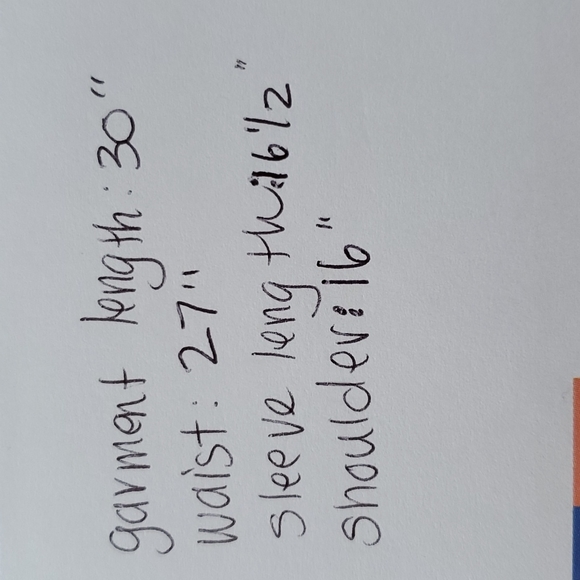 garment length: 30"
waist: 27"
sleeve length: 16 1/2"
shoulder: 16"